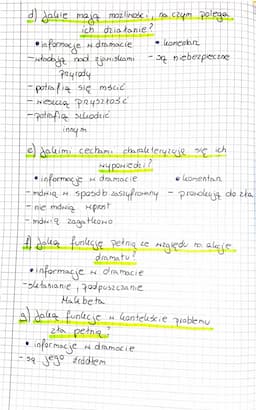 d) Jakie mają możliwości, na czym polega
ich działanie?
• informacje w dramacie • komentarz
- władają nad zjawiskami - są niebezpieczne
przyrody
- potrafią się mścić
- wieszczą przyszłość
- potrafią szkodzić
innym
e) Jakimi cechami charakteryzują się ich
wypowiedzi?
• informacje w dramacie • komentarz
- mówią w sposób zaszyfrowany - prowokują do zła
- nie mówią wprost
- mówią zagadkowo
f) Jaką funkcję pełnią ze względu na akcję
dramatu?
• informacje w dramacie
- skłanianie, podpuszczanie
Makbeta
g) Jaką funkcję w kontekście problemu
zła pełnią?
• informacje w dramacie
- są jego źródłem